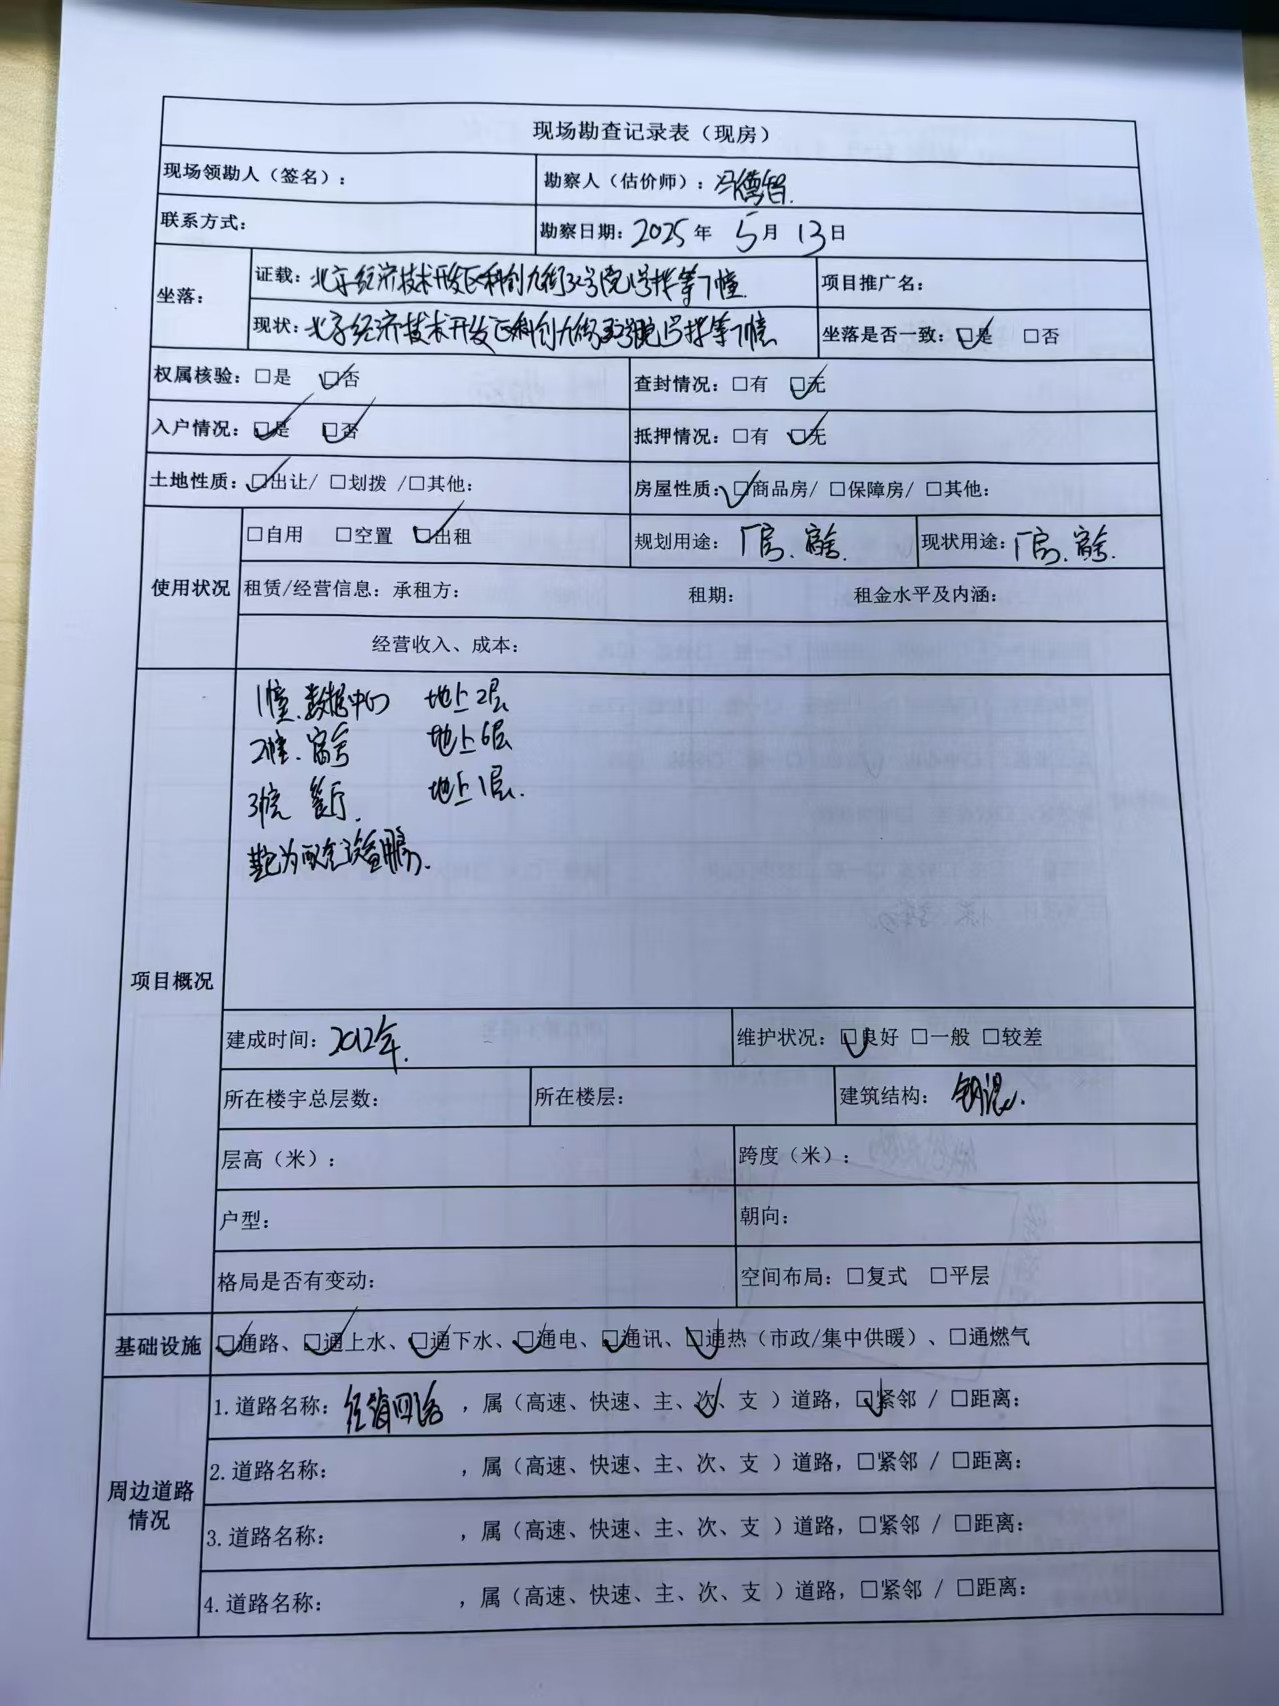 现场勘查记录表（现房）
现场领勘人（签名）：
勘察人（估价师）：冯德智.
联系方式：
勘察日期：2025年 5月 13日
坐落：
证载：北京经济技术开发区科创九街32号院1号楼等7幢
项目推广名：
现状：北京经济技术开发区科创九街32号院1号楼等7幢
坐落是否一致：☑是 □否
权属核验：□是 ☑否
查封情况：□有 ☑无
入户情况：☑是 ☑否
抵押情况：□有 ☑无
土地性质：☑出让/ □划拨 /□其他：
房屋性质：☑商品房/ □保障房/ □其他：
使用状况
□自用 □空置 ☑出租
规划用途：厂房、宿舍.
现状用途：厂房、宿舍.
租赁/经营信息：承租方： 租期： 租金水平及内涵：
经营收入、成本：
项目概况
1幢、数据中心 地上2层
2幢、宿舍 地上6层
3幢 餐厅. 地上1层.
为配套设备用房.
建成时间：2012年.
维护状况：☑良好 □一般 □较差
所在楼宇总层数：
所在楼层：
建筑结构：钢混.
层高（米）：
跨度（米）：
户型：
朝向：
格局是否有变动：
空间布局：□复式 □平层
基础设施
☑通路、☑通上水、☑通下水、☑通电、☑通讯、☑通热（市政/集中供暖）、□通燃气
周边道路情况
1.道路名称：经海四路，属（高速、快速、主、次✓、支 ）道路，☑紧邻 / □距离：
2.道路名称： ，属（高速、快速、主、次、支 ）道路，□紧邻 / □距离：
3.道路名称： ，属（高速、快速、主、次、支 ）道路，□紧邻 / □距离：
4.道路名称： ，属（高速、快速、主、次、支 ）道路，□紧邻 / □距离：